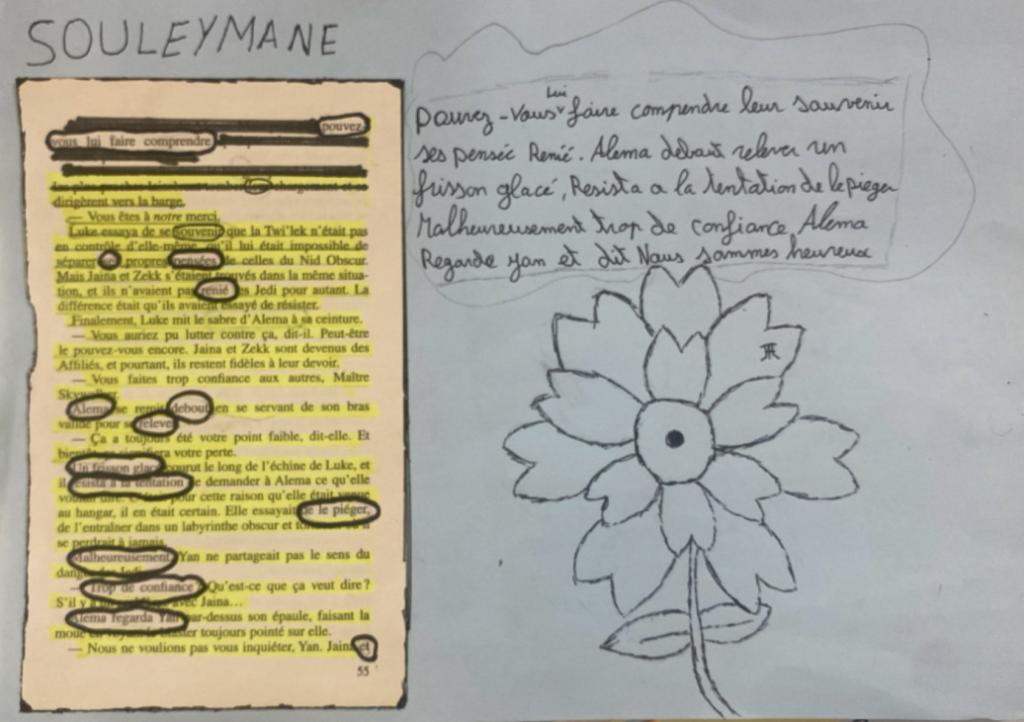 SOULEYMANE
pouvez
vous lui faire comprendre
dirigèrent vers la barge.
— Vous êtes à notre merci.
Luke essaya de se souvenir que la Twi'lek n'était pas
en contrôle d'elle-même, qu'il lui était impossible de
séparer propres pensées de celles du Nid Obscur.
Mais Jaina et Zekk s'étaient trouvés dans la même situa-
tion, et ils n'avaient pas renié les Jedi pour autant. La
différence était qu'ils avaient essayé de résister.
Finalement, Luke mit le sabre d'Alema à sa ceinture.
— Vous auriez pu lutter contre ça, dit-il. Peut-être
le pouvez-vous encore. Jaina et Zekk sont devenus des
Affiliés, et pourtant, ils restent fidèles à leur devoir.
— Vous faites trop confiance aux autres, Maître
Skywalker.
Alema se remit debout en se servant de son bras
valide pour se relever.
— Ça a toujours été votre point faible, dit-elle. Et
bientôt signifiera votre perte.
Un frisson glacé courut le long de l'échine de Luke, et
il résista à la tentation de demander à Alema ce qu'elle
voulait dire. C'était pour cette raison qu'elle était venue
au hangar, il en était certain. Elle essayait de le piéger,
de l'entraîner dans un labyrinthe obscur et
se perdrait à jamais.
Malheureusement, Yan ne partageait pas le sens du
danger
— Trop de confiance ? Qu'est-ce que ça veut dire ?
S'il y a avec Jaina…
Alema regarda Yan par-dessus son épaule, faisant la
moue en voyant le blaster toujours pointé sur elle.
— Nous ne voulions pas vous inquiéter, Yan. Jaina et
55
Pouvez-Vous Lui faire comprendre leur souvenir
ses pensée Renié. Alema debout relever un
frisson glacé, Resista a la tentation de le pieger
Malheureusement trop de confiance Alema
Regarde yan et dit Nous sommes heureux